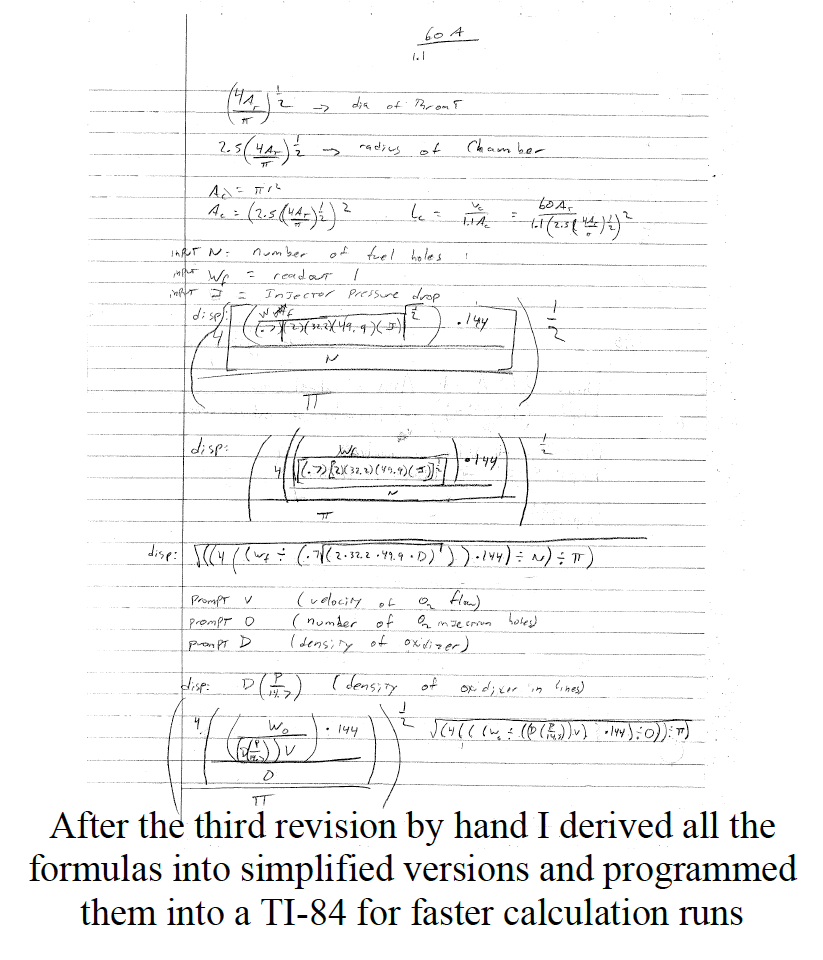 60 A
1.1
(4A_T/π)^1/2 → dia of Throat
2.5(4A_T/π)^1/2 → radius of Chamber
A_c = πr²
A_c = (2.5(4A_T/π)^1/2)² L_c = V_c/1.1A_c = 60A_T/1.1(2.5(4A_T/π)^1/2)²
input N: number of fuel holes
input W_f = readout 1
input J = Injector Pressure drop
disp: (4[(W_f/(.7)[(2)(32.2)(49.9)(J)]^1/2) · .144]/N/π)^1/2
disp: (4((W_f/[(.7)[2)(32.2)(49.9)(J)]^1/2]) · .144)/N/π)^1/2
disp: √((4((W_f ÷ (.7√(2·32.2·49.9·D))))·.144) ÷ N) ÷ π)
prompt V (velocity of O₂ flow)
prompt O (number of O₂ injection holes)
prompt D (density of oxidizer)
disp: D(P/14.7) (density of oxidizer in lines)
(4((W_o/(D(P/14.7))V) · .144/O)/π)^1/2 √(4(((W_o ÷ ((D(P/14.7))V) ·.144)÷O))÷π)
After the third revision by hand I derived all the
formulas into simplified versions and programmed
them into a TI-84 for faster calculation runs